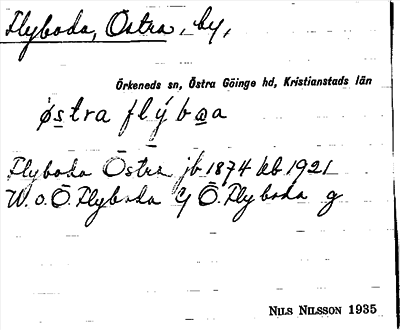 Flyboda, Östra, by,
Örkeneds sn, Östra Göinge hd, Kristianstads län
østra flýbaa
Flyboda Östra jb 1874 kb 1921
W. o. Ö. Flyboda Ö. Flyboda g
NILS NILSSON 1935